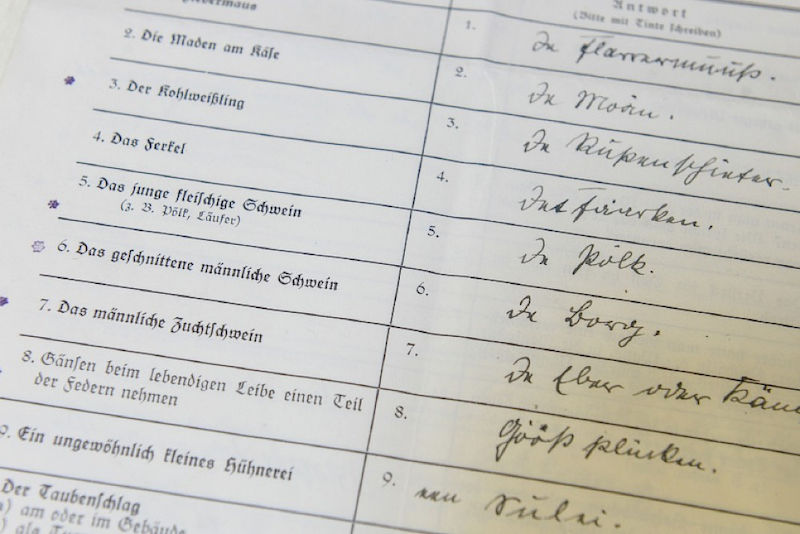 Antwort
(Bitte mit Tinte ſchreiben)
1. De Flarrermuuß.
2. Die Maden am Käſe
2. De Moän.
3. Der Kohlweißling
3. De Rupenſchieter.
4. Das Ferkel
4. Det Faarken.
5. Das junge fleiſchige Schwein
(z. B. Pölk, Läufer)
5. De Pölk.
6. Das geſchnittene männliche Schwein
6. De Borg.
7. Das männliche Zuchtſchwein
7. De Eber oder
8. Gänſen beim lebendigen Leibe einen Teil
der Federn nehmen
8. Gööß plücken.
9. Ein ungewöhnlich kleines Hühnerei
9. een
Der Taubenſchlag
a) am oder im Gebäude